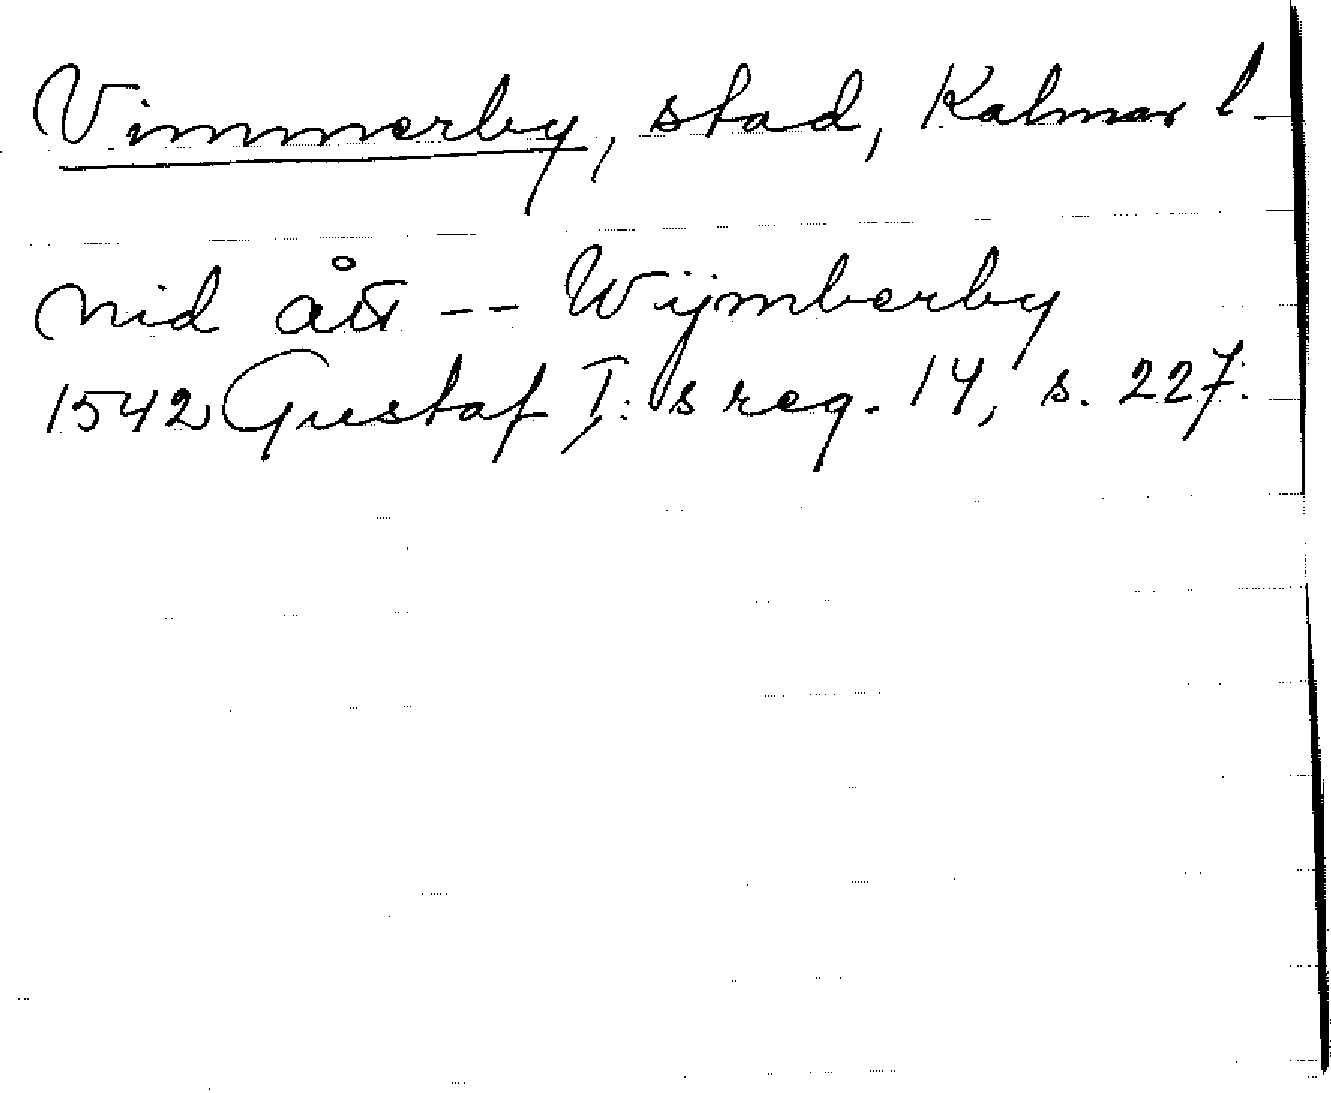 Vimmerby, stad, Kalmar l.
nid ått -- Wijmberby
1542 Gustaf I:s reg. 14, s. 227.